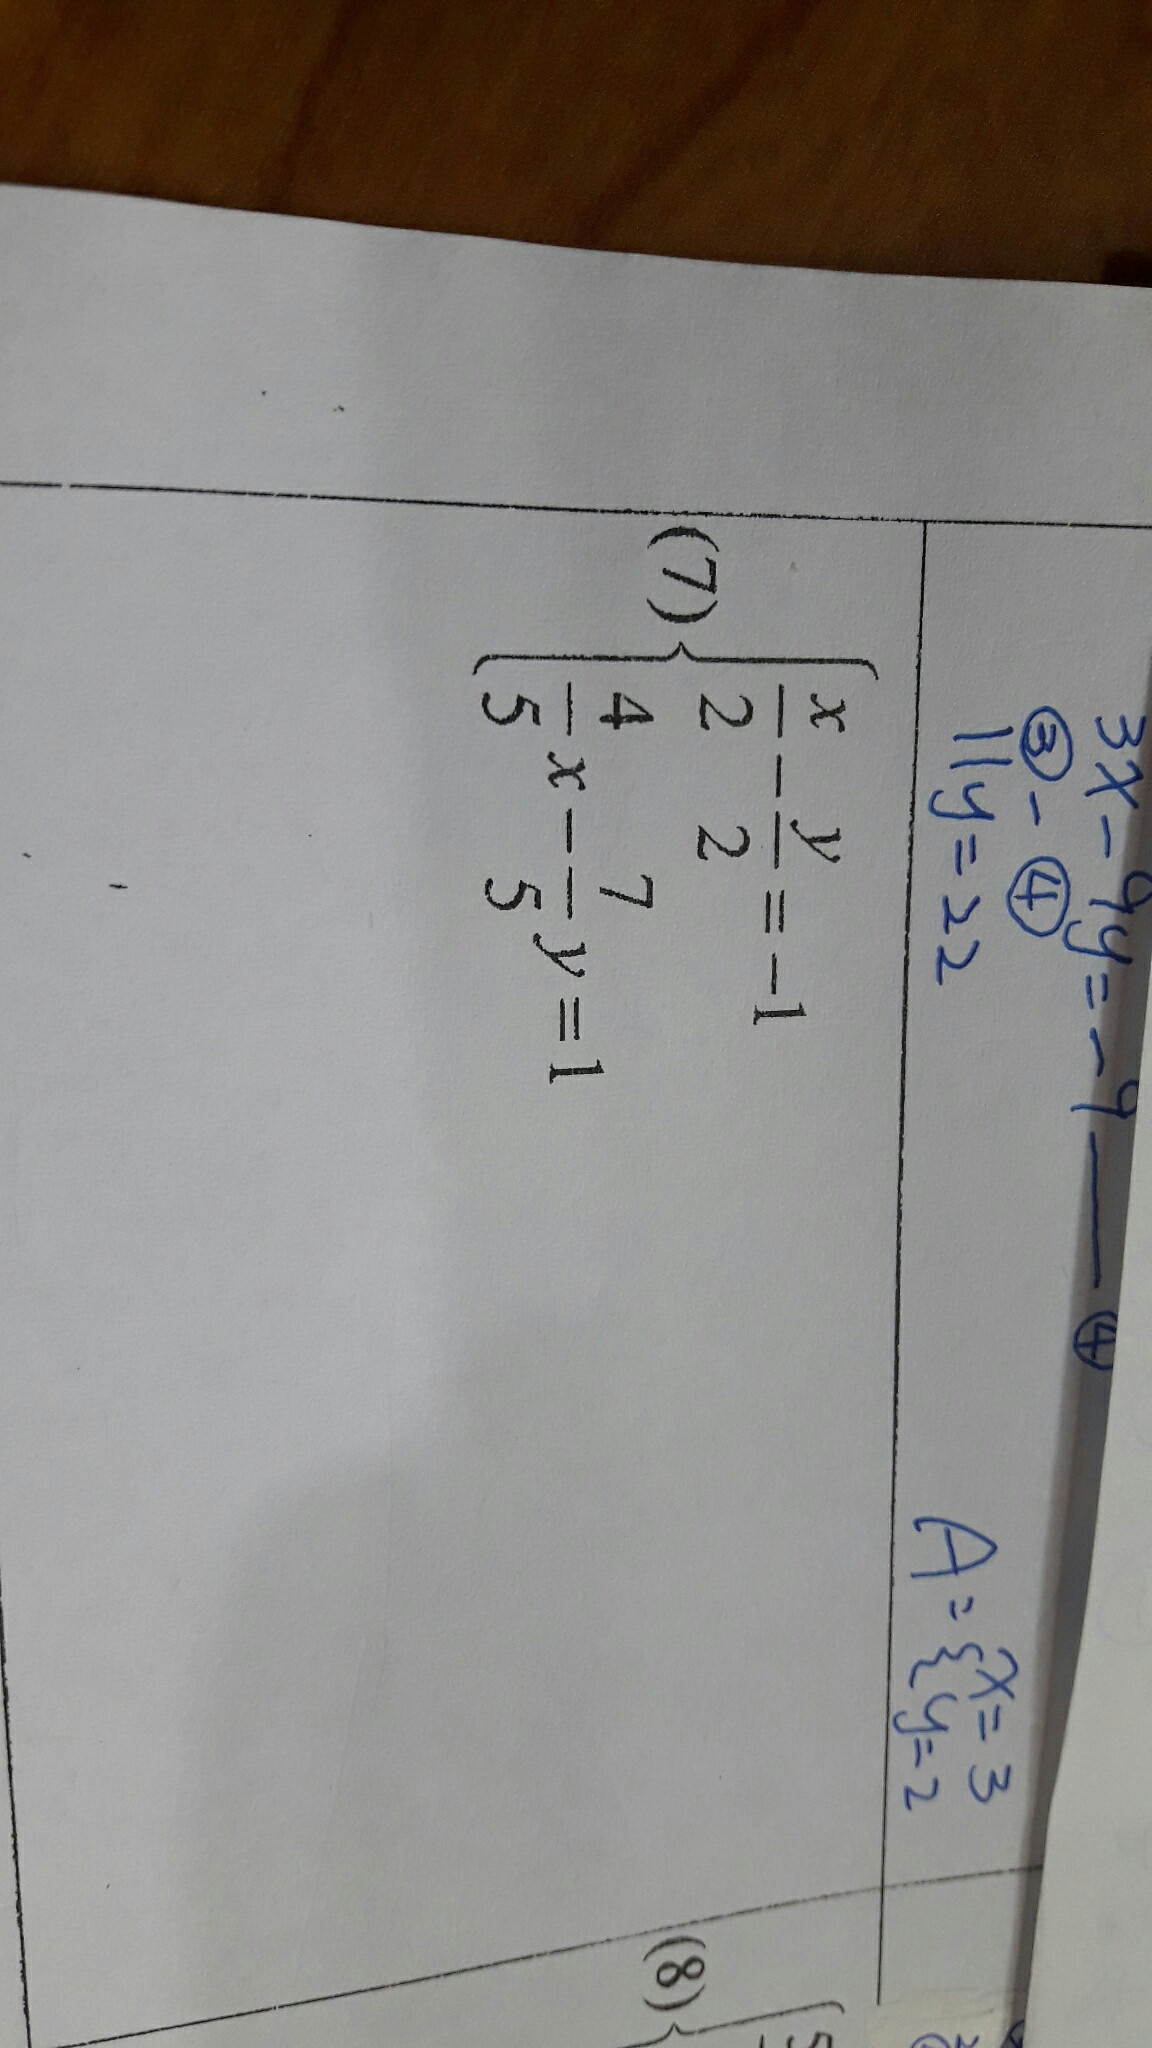 3x - 9y = -9 — ④
③ - ④
11y = 22
A = { x = 3
y = 2
(7) { x/2 - y/2 = -1
4/5 x - 7/5 y = 1
(8) {